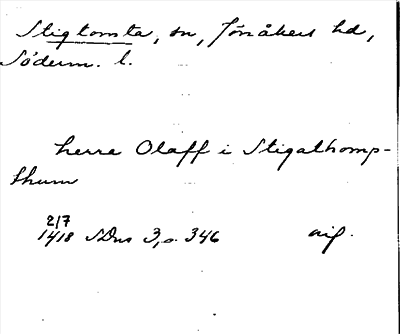 Stigtomta, sn, Jönåkers hd,
Söderm. l.
herre Olaff i Stigathomp-
thum
2/7
1418 SDns 3, s. 346 avs.